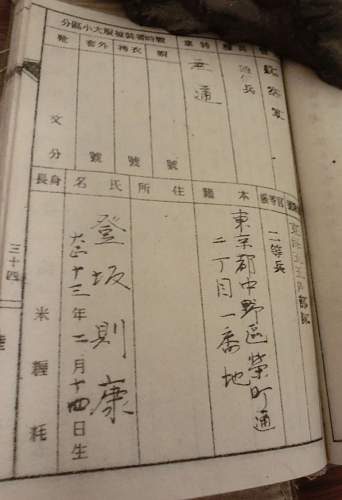 戰時著裝被服大小區分
兵
特業
無通
帽
號
衣袴
號
外套
號
靴
文
分
二等兵
本籍
東京都中野區榮町通
二丁目一番地
住所
氏名
登坂則康
大正十三年二月十四日生
身長
米糎粍
三十四